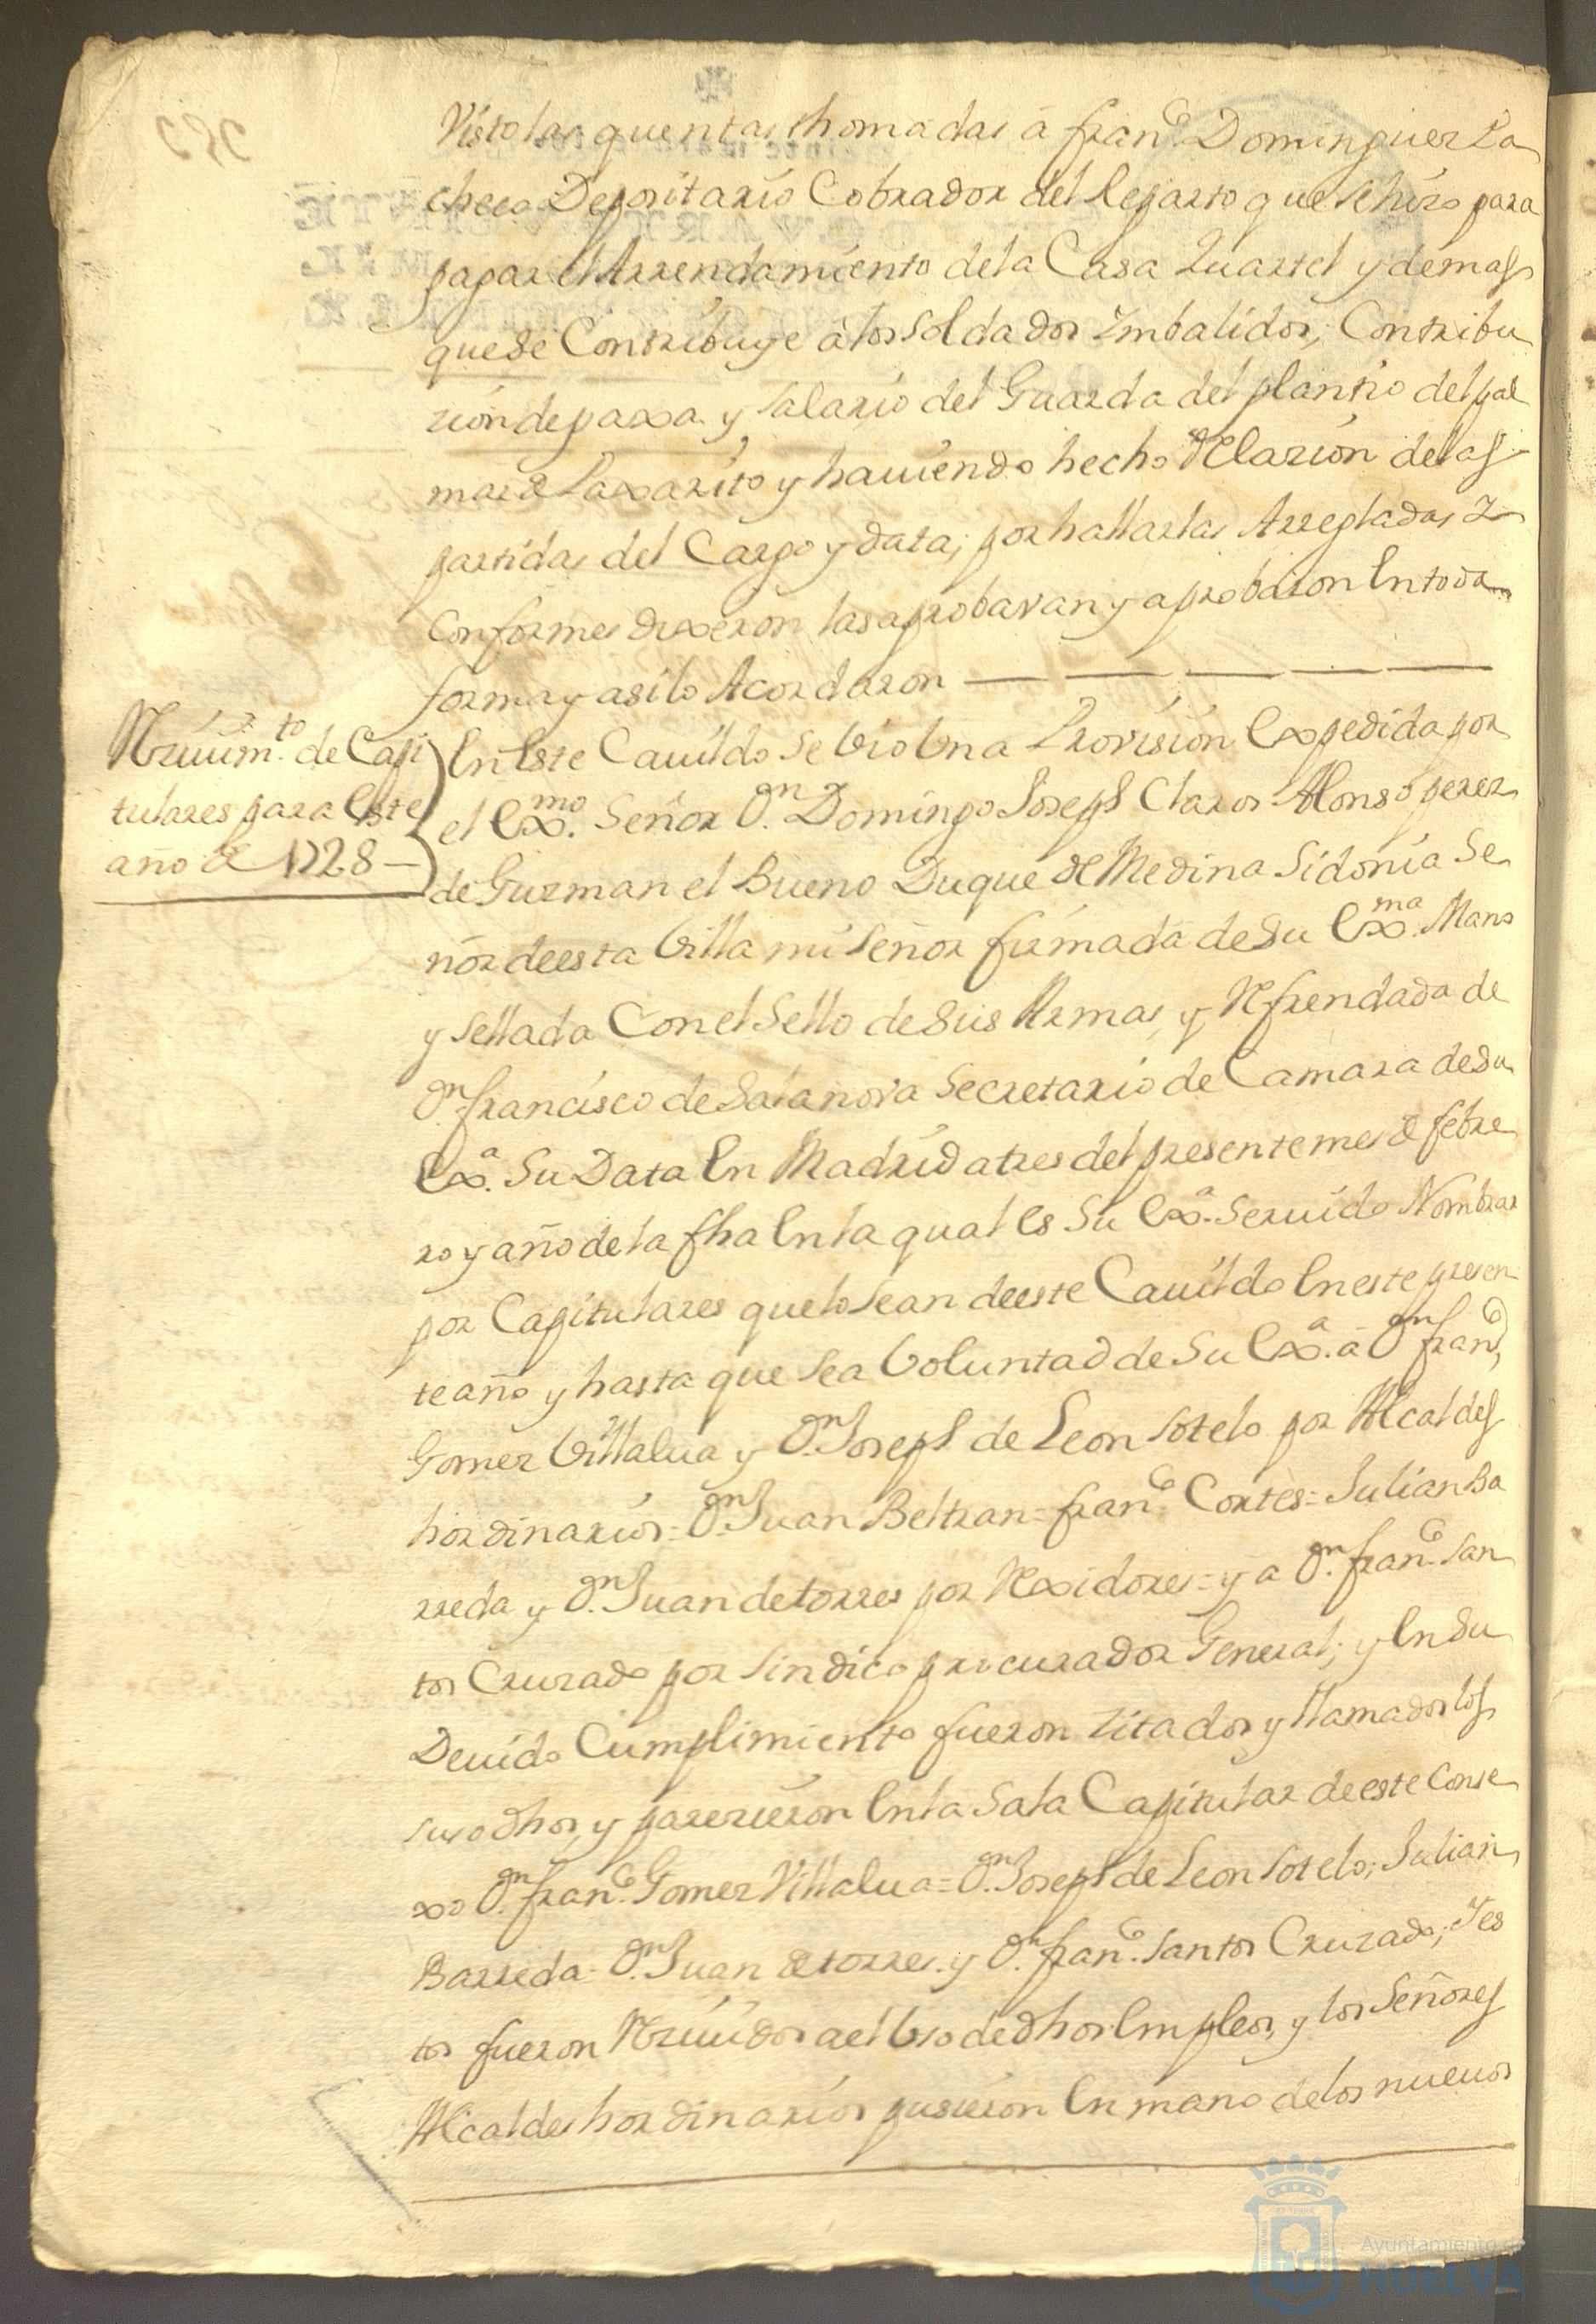 Visto las quentas thomadas â fran.co Dominguez Pa
checo Depositario Cobrador del Reparto que se hizo para
pagar el Arrendamiento dela Casa Quartel y demas
que se Contribuye â los soldados Imbalidos; Contribu
zion de paxa y salario del Guarda del plantio del pal
mar de Paxarito y hauiendo hecho Relazion de las
partidas del Cargo y data; por hallarlas Arregladas Y
Conformes dixeron las aprobavan y aprobaron En toda
forma y asi lo Acordaron
Reziuim.to de Capi
tulares para Este
año de 1728
En Este Cauildo se bio Vna Provision Expedida por
el Ex.mo Señor D.n Domingo Joseph Claros Alonso perez
de Guzman el Bueno Duque de Medina Sidonia Se
ñor de esta Villa mi señor firmada de su Ex.ma Mano
y sellada Con el Sello de sus Armas y Refrendada de
D.n francisco de Salanova Secretario de Camara de su
Ex.a Su Data En Madrid a tres del presente mes de febre
ro y año de la fha En la qual Es Su Ex.a Seruido Nombrar
por Capitulares que lo sean de este Cauildo En este presen
te año y hasta que sea Voluntad de Su Ex.a â D.n fran.co
Gomez Villalua y D.n Joseph de Leon Sotelo por Alcaldes
hordinarios = D.n Juan Beltran = fran.co Cortès = Julian Ba
rreda y D.n Juan de torres por Rexidores = y a D.n fran.co San
tos Cruzado por sindico procurador General; y En su
Deuido Cumplimiento fueron zitados y llamados los
suso dhos, y parezieron En la Sala Capitular de este Conse
xo D.n fran.co Gomez Villalua = D.n Joseph de Leon Sotelo; Julian
Barreda = D.n Juan de torres y D.n fran.co Santos Cruzado; Y es
tos fueron Reziuidos a el Vso de dhos Empleos, y los Señores
Alcaldes hordinarios pusieron En mano de los nueuos
Ayuntamiento de
HUELVA